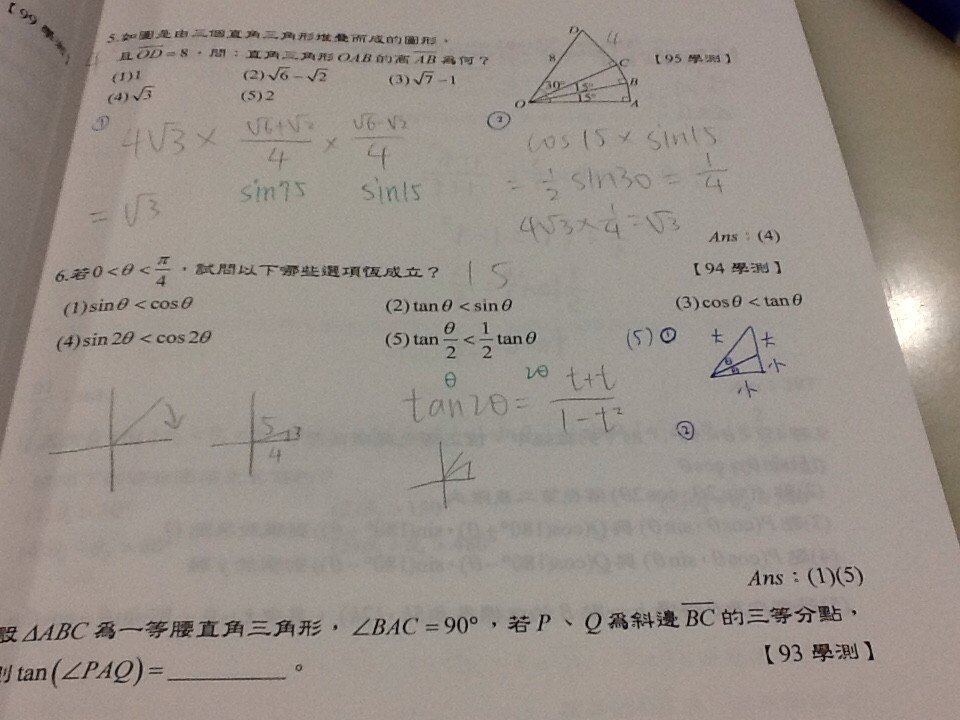 【99 學測】
5.如圖是由三個直角三角形堆疊而成的圖形，
且OD=8，問：直角三角形OAB的高AB為何？ 【95 學測】
(1)1 (2)√6−√2 (3)√7−1
(4)√3 (5)2
D 4
8 C
30° 15° B
O 15° A
① 4√3 × (√6+√2)/4 × (√6−√2)/4
sin75 sin15
= √3
② cos15 × sin15
= 1/2 sin30 = 1/4
4√3 × 1/4 = √3
Ans：(4)
6.若0<θ<π/4，試問以下哪些選項恆成立？ 15 【94 學測】
(1)sinθ<cosθ (2)tanθ<sinθ (3)cosθ<tanθ
(4)sin2θ<cos2θ (5)tan θ/2 < 1/2 tanθ
θ 2θ
tan2θ = (t+t)/(1−t²)
5 3
4
(5) ① 大 大
θ θ 小
小
②
Ans：(1)(5)
設ΔABC為一等腰直角三角形，∠BAC=90°，若P、Q為斜邊BC的三等分點，
則tan(∠PAQ)=__________。 【93 學測】